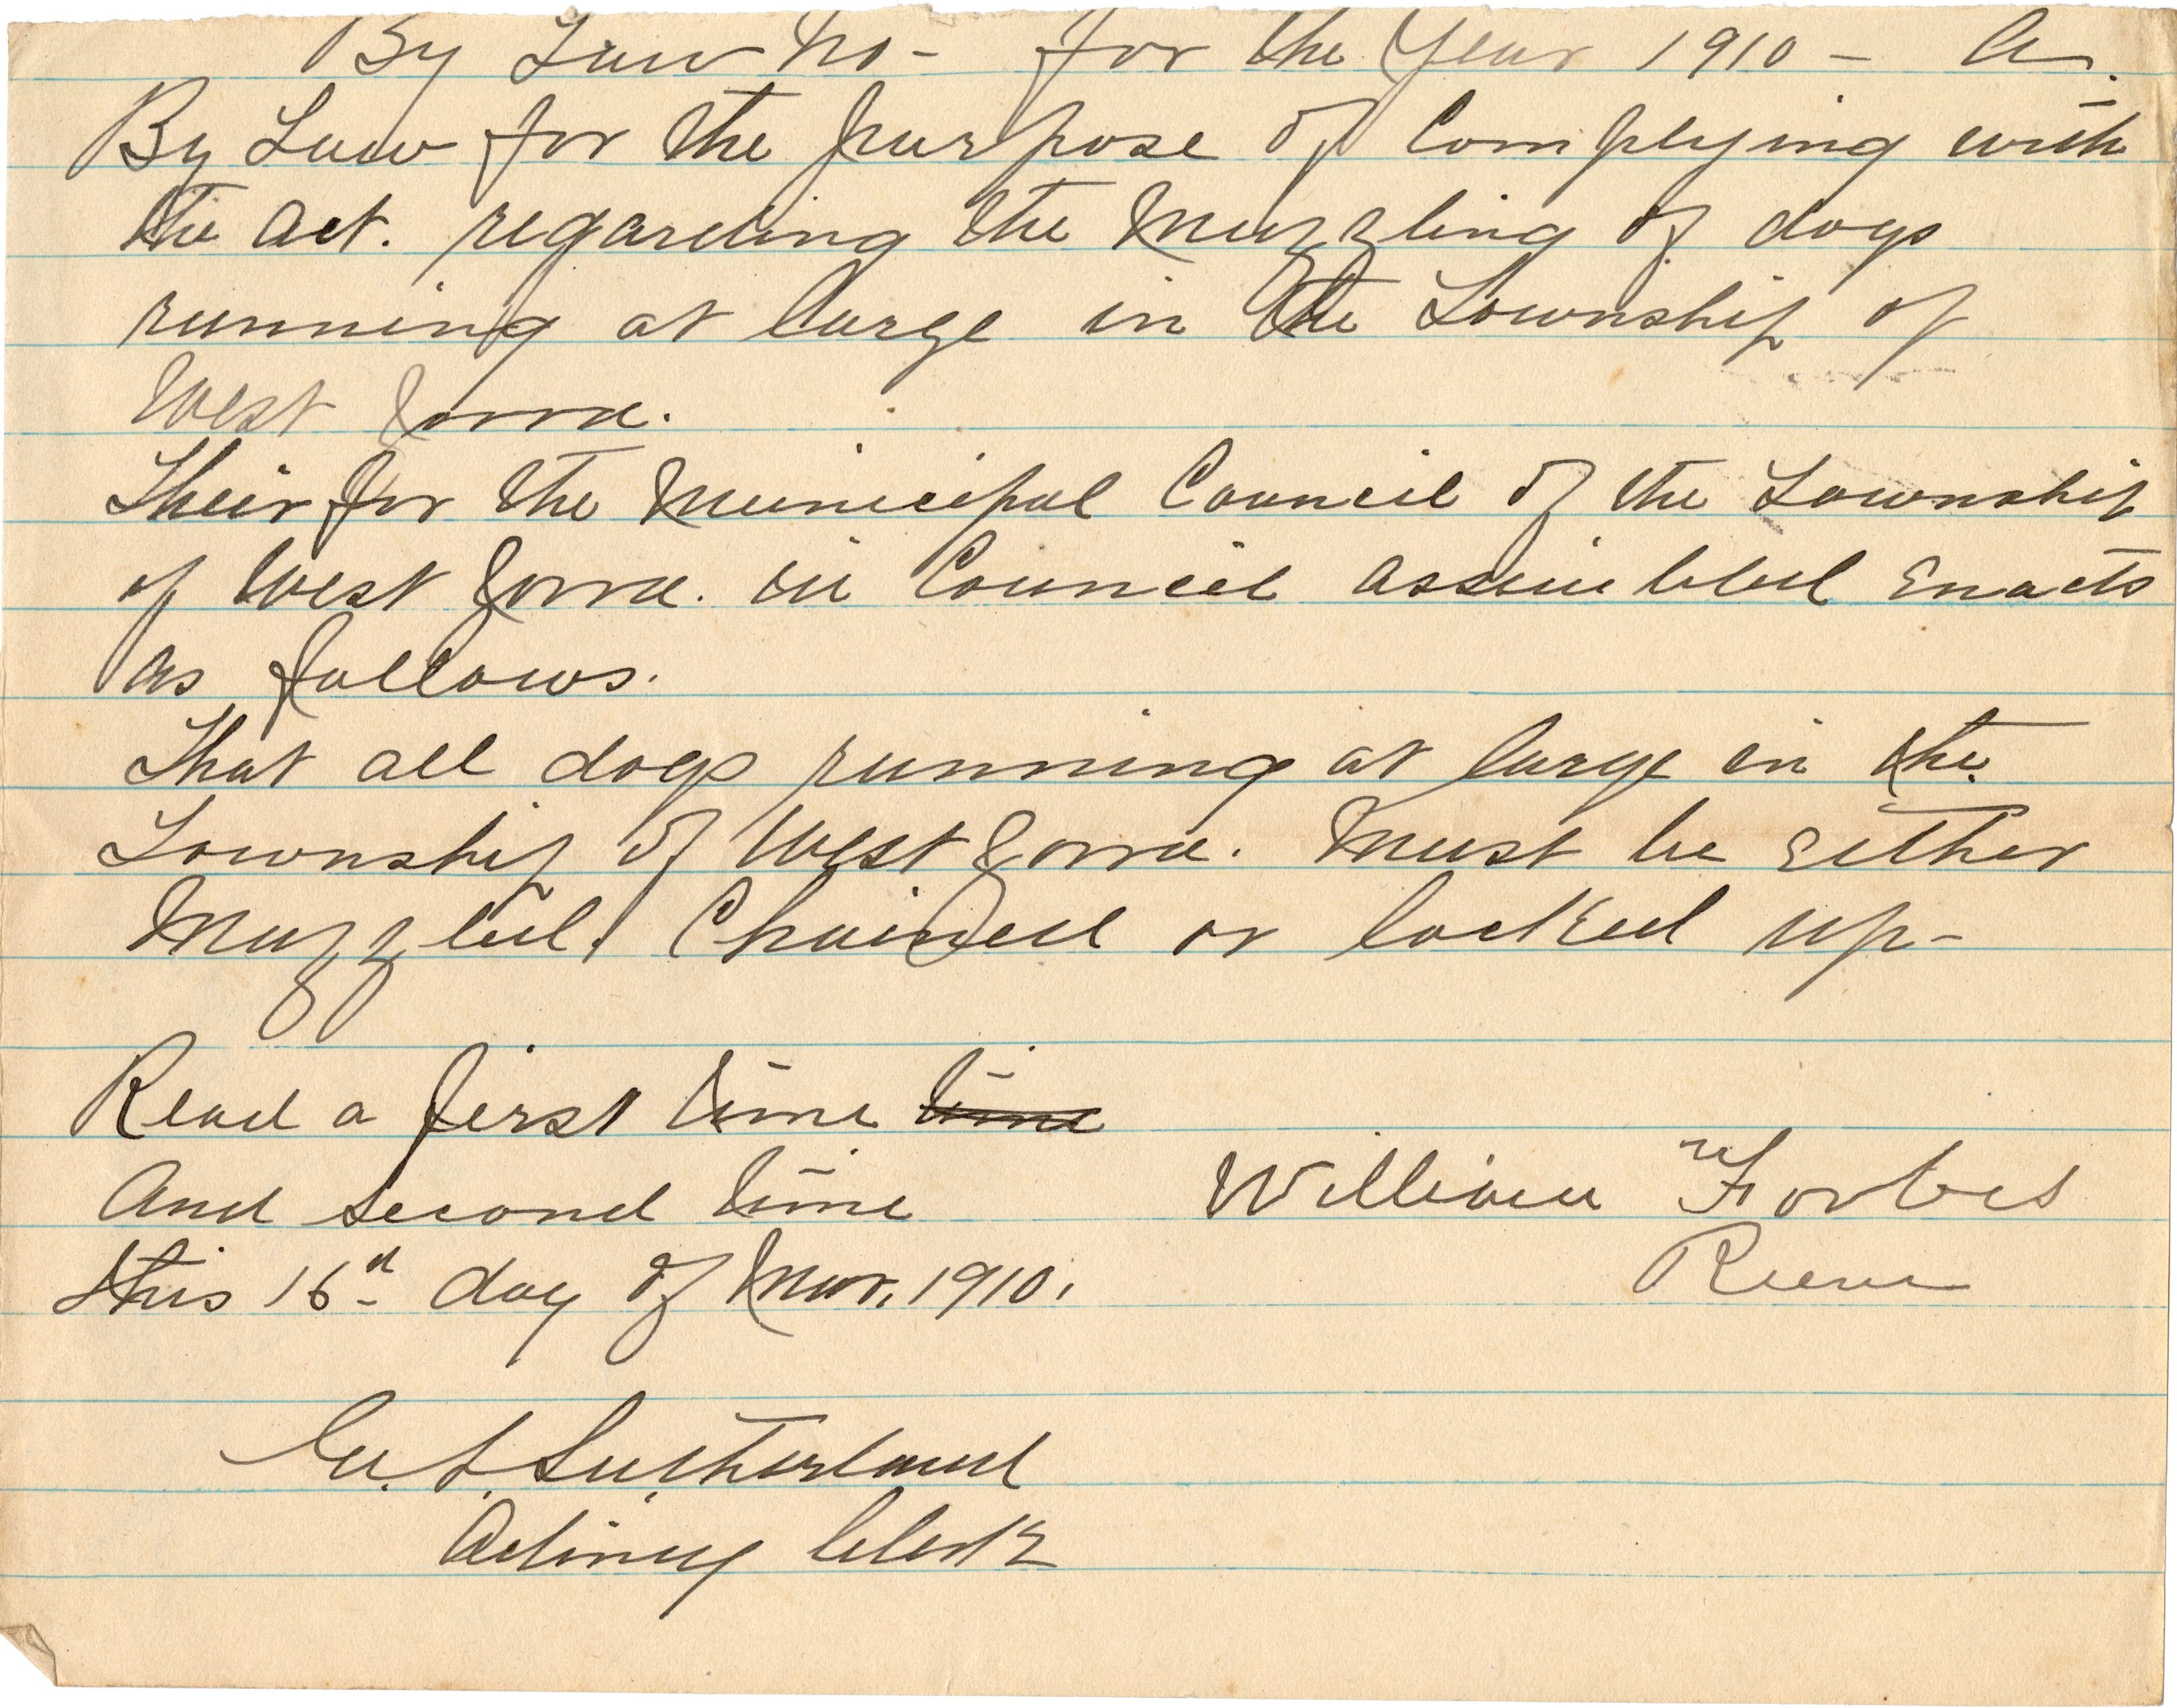 By Law No - for the Year 1910 - A
By Law for the purpose of Complying with
the Act. regarding the Muzzling of dogs
running at large in the Township of
West Zorra.
Their for the Municipal Council of the Township
of West Zorra. in Council assembled Enacts
as follows.
That all dogs running at large in the
Township of West Zorra. Must be Either
Muzzled. Chained or locked up-
Read a first time time
And second time
this 16th day of Mar. 1910.
William Forbes
Reeve
Sutherland
Acting Clerk